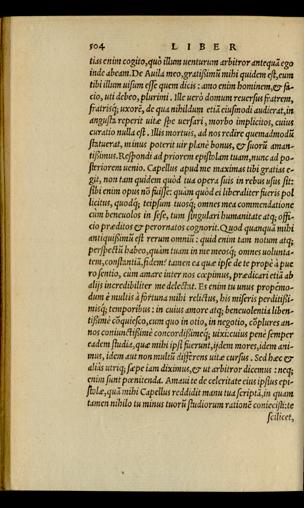 504 LIBER
tias enim cogito, quò illum uenturum arbitror antequā ego
inde abeam. De Auila meo, gratissimū mihi quidem est, eum
tibi illum uisum esse quem dicis: amo enim hominem, & fa-
cio, uti debeo, plurimi. Ille uerò domum reuersus fratrem,
fratrisq; uxorē, de qua nihildum etiā eiusmodi audierat, in
angusta reperit uitæ spe uersari, morbo implicitos, cuius
curatio nulla est. Illis mortuis, ad nos redire quemadmodū
statuerat, minus poterit uir planè bonus, & suorū aman-
tissimus. Respondi ad priorem epistolam tuam, nunc ad po-
steriorem uenio. Capellus apud me maximas tibi gratias e-
git, non tam quidem quòd tua opera suis in rebus usus sit:
sibi enim opus nō fuisse: quàm quòd ei liberaliter fueris pol
licitus, quodq; teipsum tuosq; omnes mea commendatione
cum beneuolos in sese, tum singulari humanitate atq; offi-
cio præditos & perornatos cognorit. Quod quanquā mihi
antiquissimū est rerum omniū: quid enim tam notum atq;
perspectū habeo, quàm tuam in me meosq; omnes uolunta-
tem, constantiā, fidem? tamen ea quæ ipse de te propè à pue
ro sentio, cum amare inter nos cœpimus, prædicari etiā ab
alijs incredibiliter me delectat. Es enim tu unus propémo-
dum è multis à fortuna mihi relictus, his miseris perditissi-
misq; temporibus: in cuius amore atq; beneuolentia liben-
tissimè cōquiesco, cum quo in otio, in negotio, cōplures an-
nos coniunctissimè concordissiméq; uixi: cuius penè semper
eadem studia, quæ mihi ipsi fuerunt, ijdem mores, idem ani-
mus, idem aut non multū differens uitæ cursus. Sed hæc &
aliàs utriq; sæpe iam diximus, & ut arbitror dicemus: neq;
enim sunt pœnitenda. Amaui te de celeritate eius ipsius epi-
stolæ, quā mihi Capellus reddidit manu tua scriptā, in quam
tamen nihilo tu minus tuorū studiorum rationē coniecisti: te
scilicet,